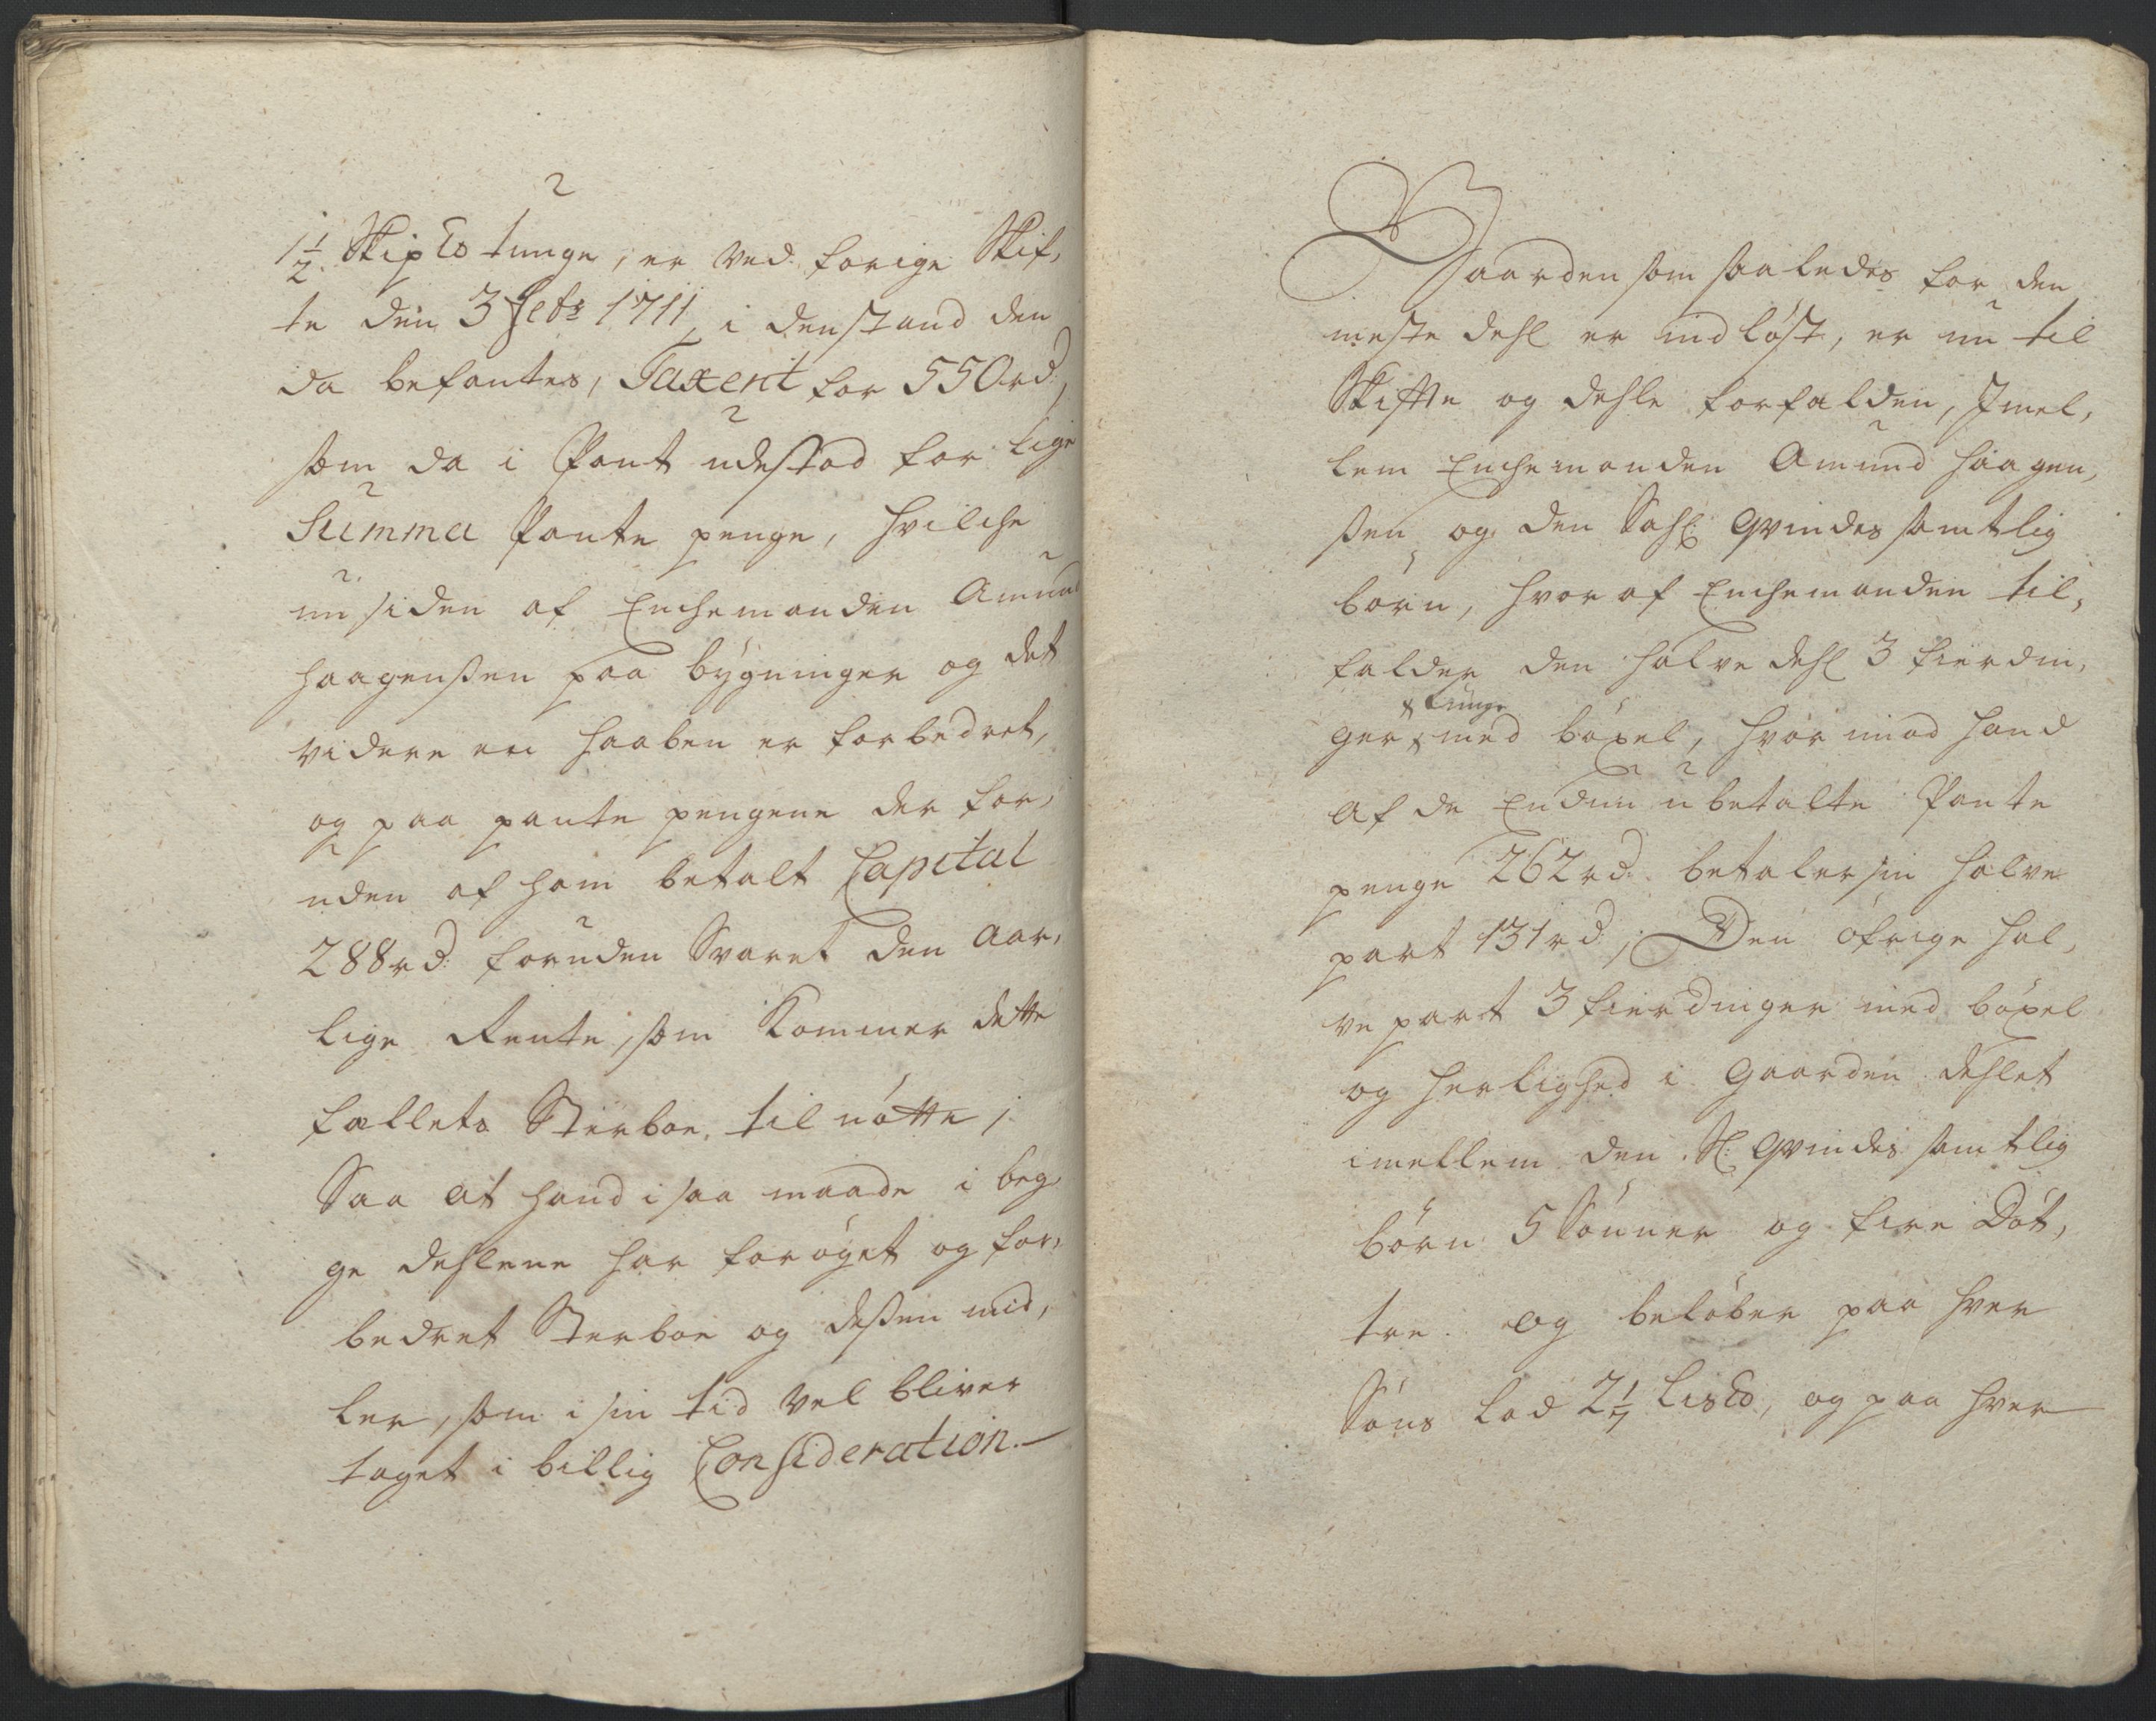 1½ Skip℔ tunge, er ved forige Skif,
te den 3 Febr 1711, i den stand den
da befantes, Taxerit for 550 rd,
som da i Pant udestod for lige
Summa Pante penge, hvilche
nu siden af Enchemanden Amund
Haagenssen paa bygninger og det
videre en haaben er forbedret,
og paa pante pengene der for,
uden af ham betalt Capital
288 rd: foruden Svaret den aar,
lige Rente, som kommer dette
fællets Sterboe, til nötte;
Saa at hand i saa maade i beg,
ge dehlene har foröget og for,
bedret Sterboe og dessen mid,
ler, som i sin tid vel bliver
taget i billig Consideration.—
Gaarden som saaledes for den
meste dehl er indlöst, er nu til
Skiffte og dehle forfalden, Imel,
lem Enchemanden Amund Haagen,
ssen og den Sahl: Qvindes samtlig
börn, hvor af Enchemanden til,
falder den halve dehl 3 fierdin,
× tunge
ger × med böxel, hvor imod hand
af de Endnu ubetalte Pante
penge 262 rd. betaler sin halve
part 131 rd; Den öfrige hal,
ve part 3 fierdinger med böxel
og herlighed i Gaarden dehlet
imellem den Sl: Qvindes samtlig
börn 5 Sönner og fire Döt,
tre. og belöber paa hver
Söns lod 2 1/7 Lis℔, og paa hver